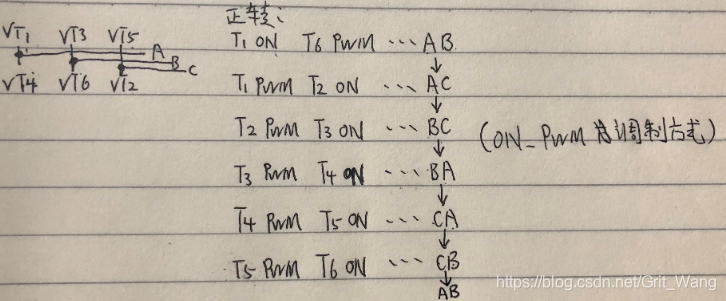 正转：
VT1 VT3 VT5
A
B
C
VT4 VT6 VT2
T1 ON T6 PWM ··· AB
T1 PWM T2 ON ··· AC
T2 PWM T3 ON ··· BC
(ON_PWM 为调制方式)
T3 PWM T4 ON ··· BA
T4 PWM T5 ON ··· CA
T5 PWM T6 ON ··· CB
AB
https://blog.csdn.net/Grit_Wang